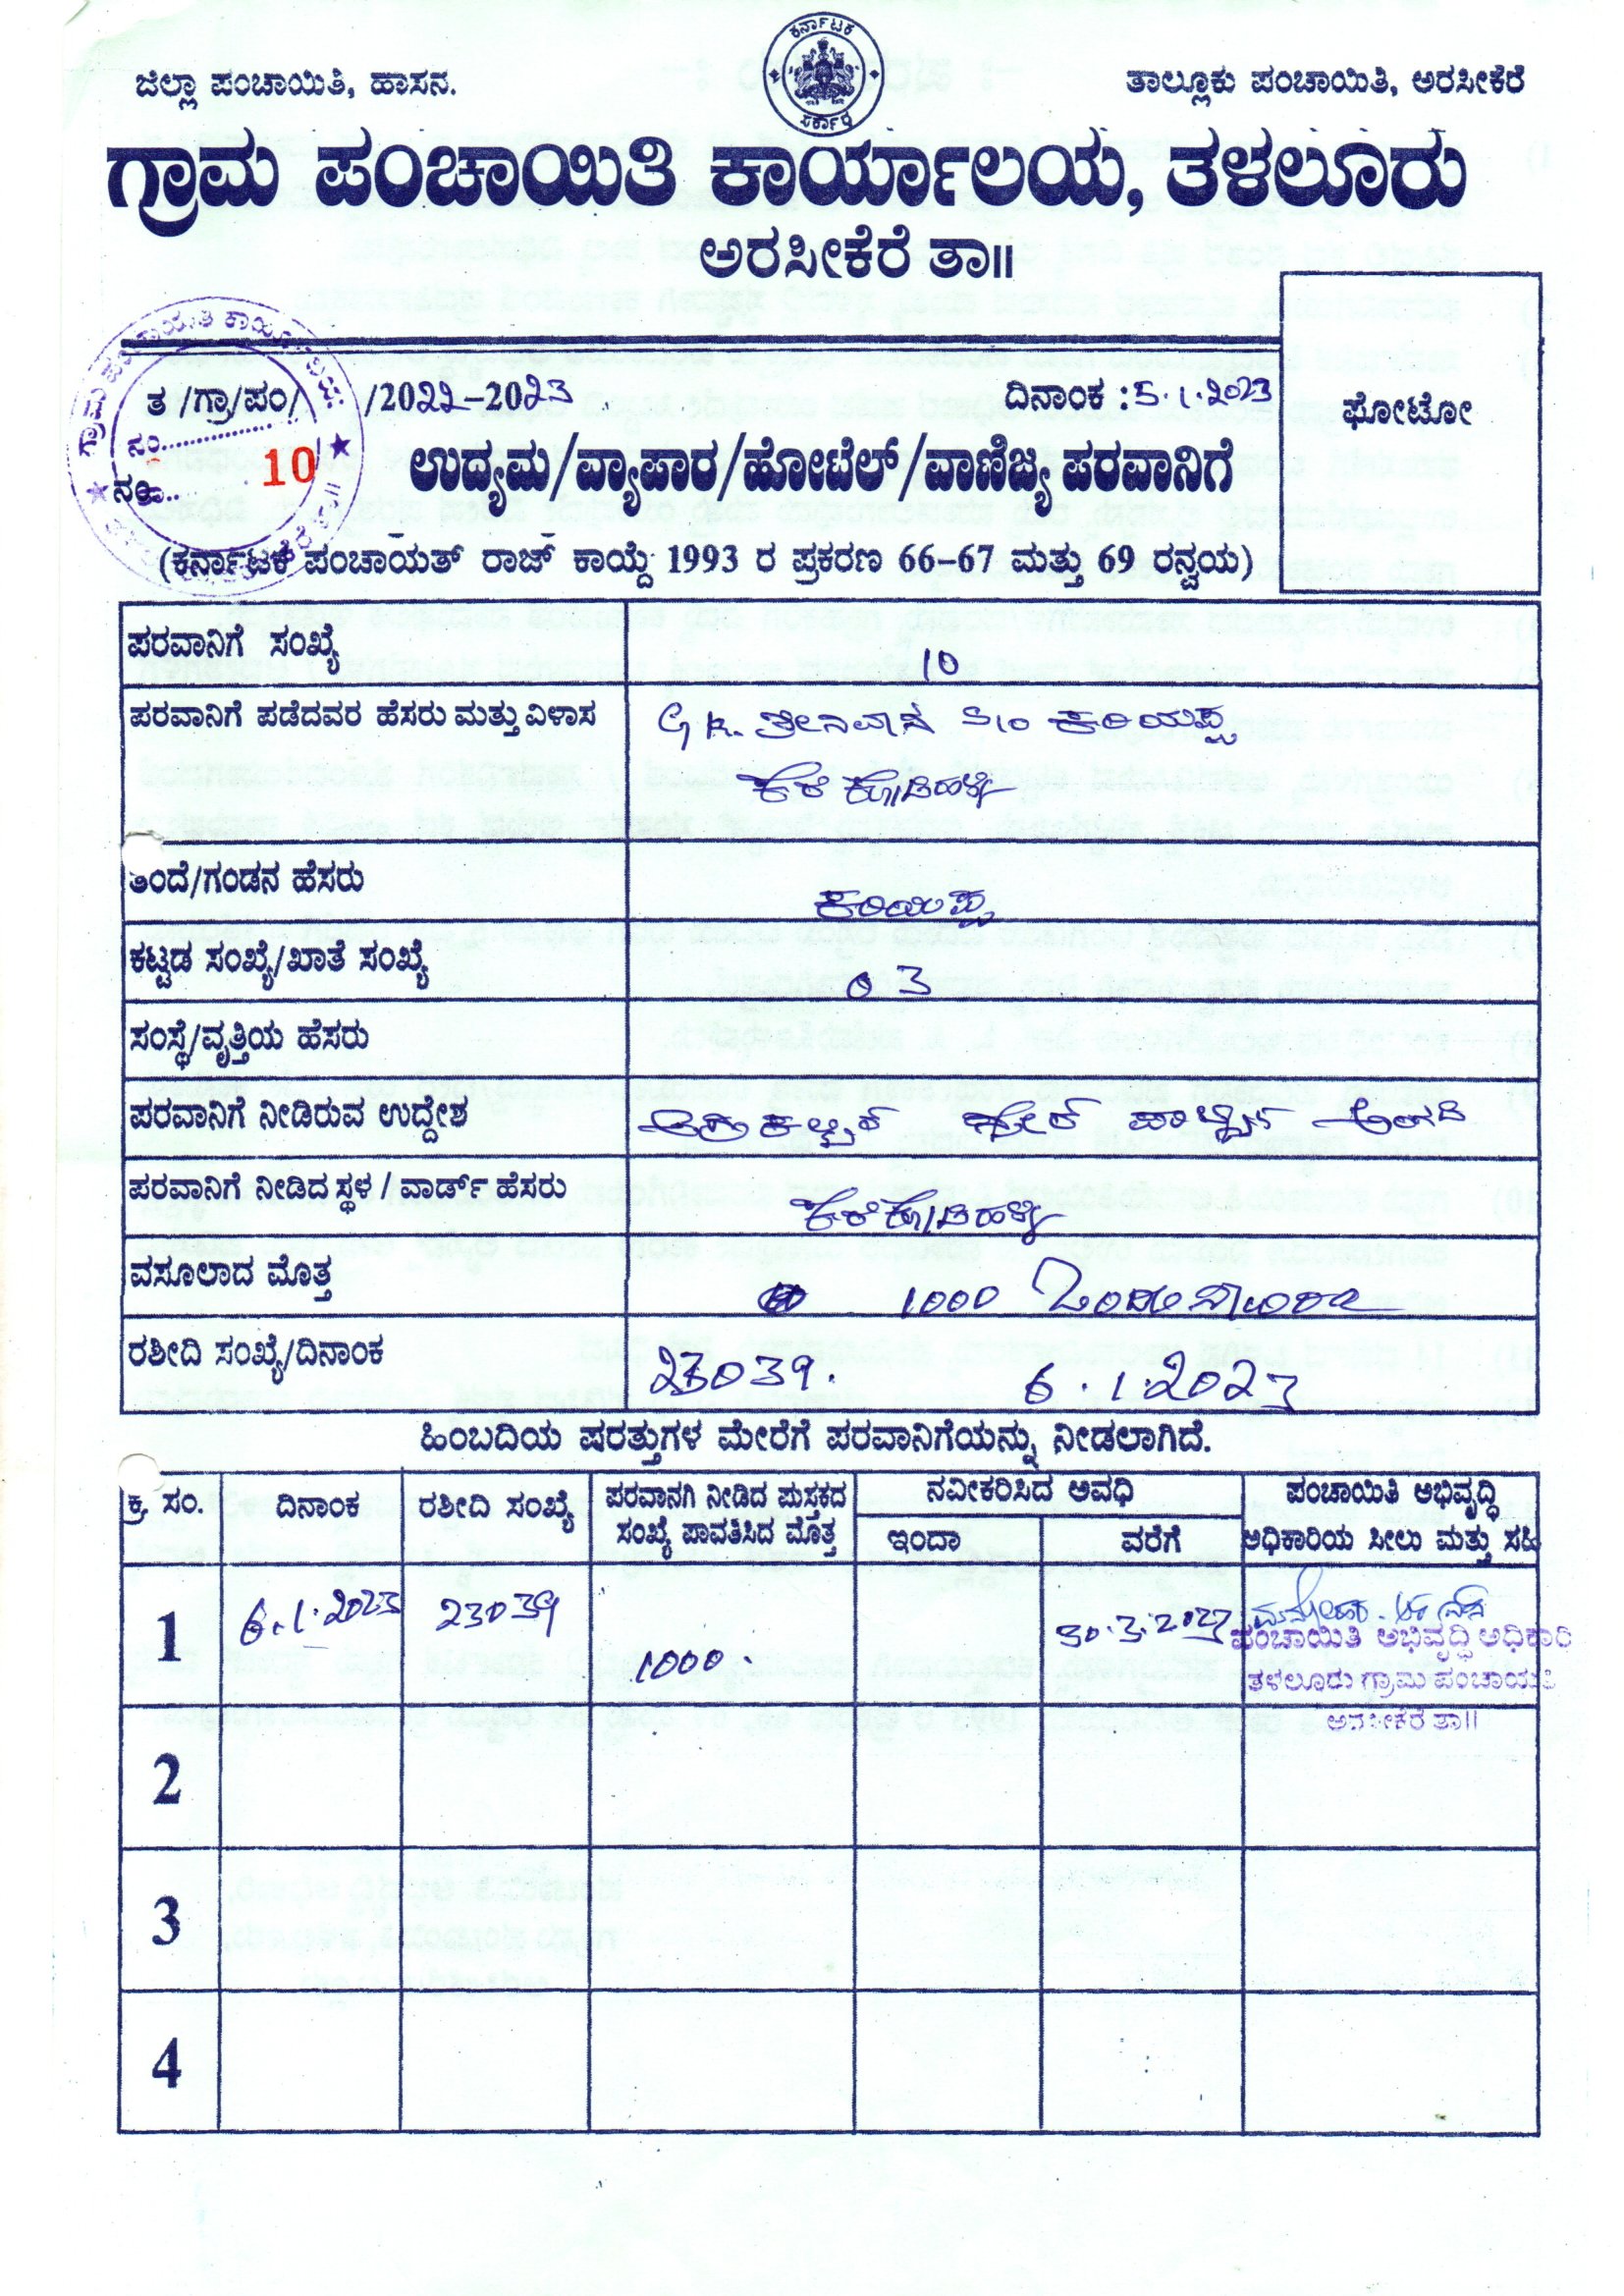 ಕರ್ನಾಟಕ ಸರ್ಕಾರ
ಜಿಲ್ಲಾ ಪಂಚಾಯಿತಿ, ಹಾಸನ.
ತಾಲ್ಲೂಕು ಪಂಚಾಯಿತಿ, ಅರಸೀಕೆರೆ
ಗ್ರಾಮ ಪಂಚಾಯಿತಿ ಕಾರ್ಯಾಲಯ, ತಳಲೂರು
ಅರಸೀಕೆರೆ ತಾ॥
ತ /ಗ್ರಾ/ಪಂ/ /2022-2023
ದಿನಾಂಕ : 5.1.2023
ಫೋಟೋ
ನಂ. 10
ಉದ್ಯಮ/ವ್ಯಾಪಾರ/ಹೋಟೆಲ್/ವಾಣಿಜ್ಯ ಪರವಾನಿಗೆ
(ಕರ್ನಾಟಕ ಪಂಚಾಯತ್ ರಾಜ್ ಕಾಯ್ದೆ 1993 ರ ಪ್ರಕರಣ 66-67 ಮತ್ತು 69 ರನ್ವಯ)
ಪರವಾನಿಗೆ ಸಂಖ್ಯೆ 10
ಪರವಾನಿಗೆ ಪಡೆದವರ ಹೆಸರು ಮತ್ತು ವಿಳಾಸ G K. ಶ್ರೀನಿವಾಸ S/O ಕರಿಯಪ್ಪ
ತಂದೆ/ಗಂಡನ ಹೆಸರು ಕರಿಯಪ್ಪ
ಕಟ್ಟಡ ಸಂಖ್ಯೆ/ಖಾತೆ ಸಂಖ್ಯೆ 03
ಸಂಸ್ಥೆ/ವೃತ್ತಿಯ ಹೆಸರು
ಪರವಾನಿಗೆ ನೀಡಿರುವ ಉದ್ದೇಶ ಅಂಗಡಿ
ಪರವಾನಿಗೆ ನೀಡಿದ ಸ್ಥಳ / ವಾರ್ಡ್ ಹೆಸರು
ವಸೂಲಾದ ಮೊತ್ತ 1000 ಒಂದು ಸಾವಿರ
ರಶೀದಿ ಸಂಖ್ಯೆ/ದಿನಾಂಕ 23039. 6.1.2023
ಹಿಂಬದಿಯ ಷರತ್ತುಗಳ ಮೇರೆಗೆ ಪರವಾನಿಗೆಯನ್ನು ನೀಡಲಾಗಿದೆ.
ಕ್ರ. ಸಂ. ದಿನಾಂಕ ರಶೀದಿ ಸಂಖ್ಯೆ
ಪರವಾನಗಿ ನೀಡಿದ ಪುಸ್ತಕದ
ಸಂಖ್ಯೆ ಪಾವತಿಸಿದ ಮೊತ್ತ
ನವೀಕರಿಸಿದ ಅವಧಿ
ಇಂದಾ ವರೆಗೆ
ಪಂಚಾಯಿತಿ ಅಭಿವೃದ್ಧಿ
ಅಧಿಕಾರಿಯ ಸೀಲು ಮತ್ತು ಸಹಿ
1 6.1.2023 23039 1000. 30.3.2023
ಪಂಚಾಯಿತಿ ಅಭಿವೃದ್ಧಿ ಅಧಿಕಾರಿ
ತಳಲೂರು ಗ್ರಾಮ ಪಂಚಾಯತಿ
ಅರಸೀಕೆರೆ ತಾ॥
2
3
4